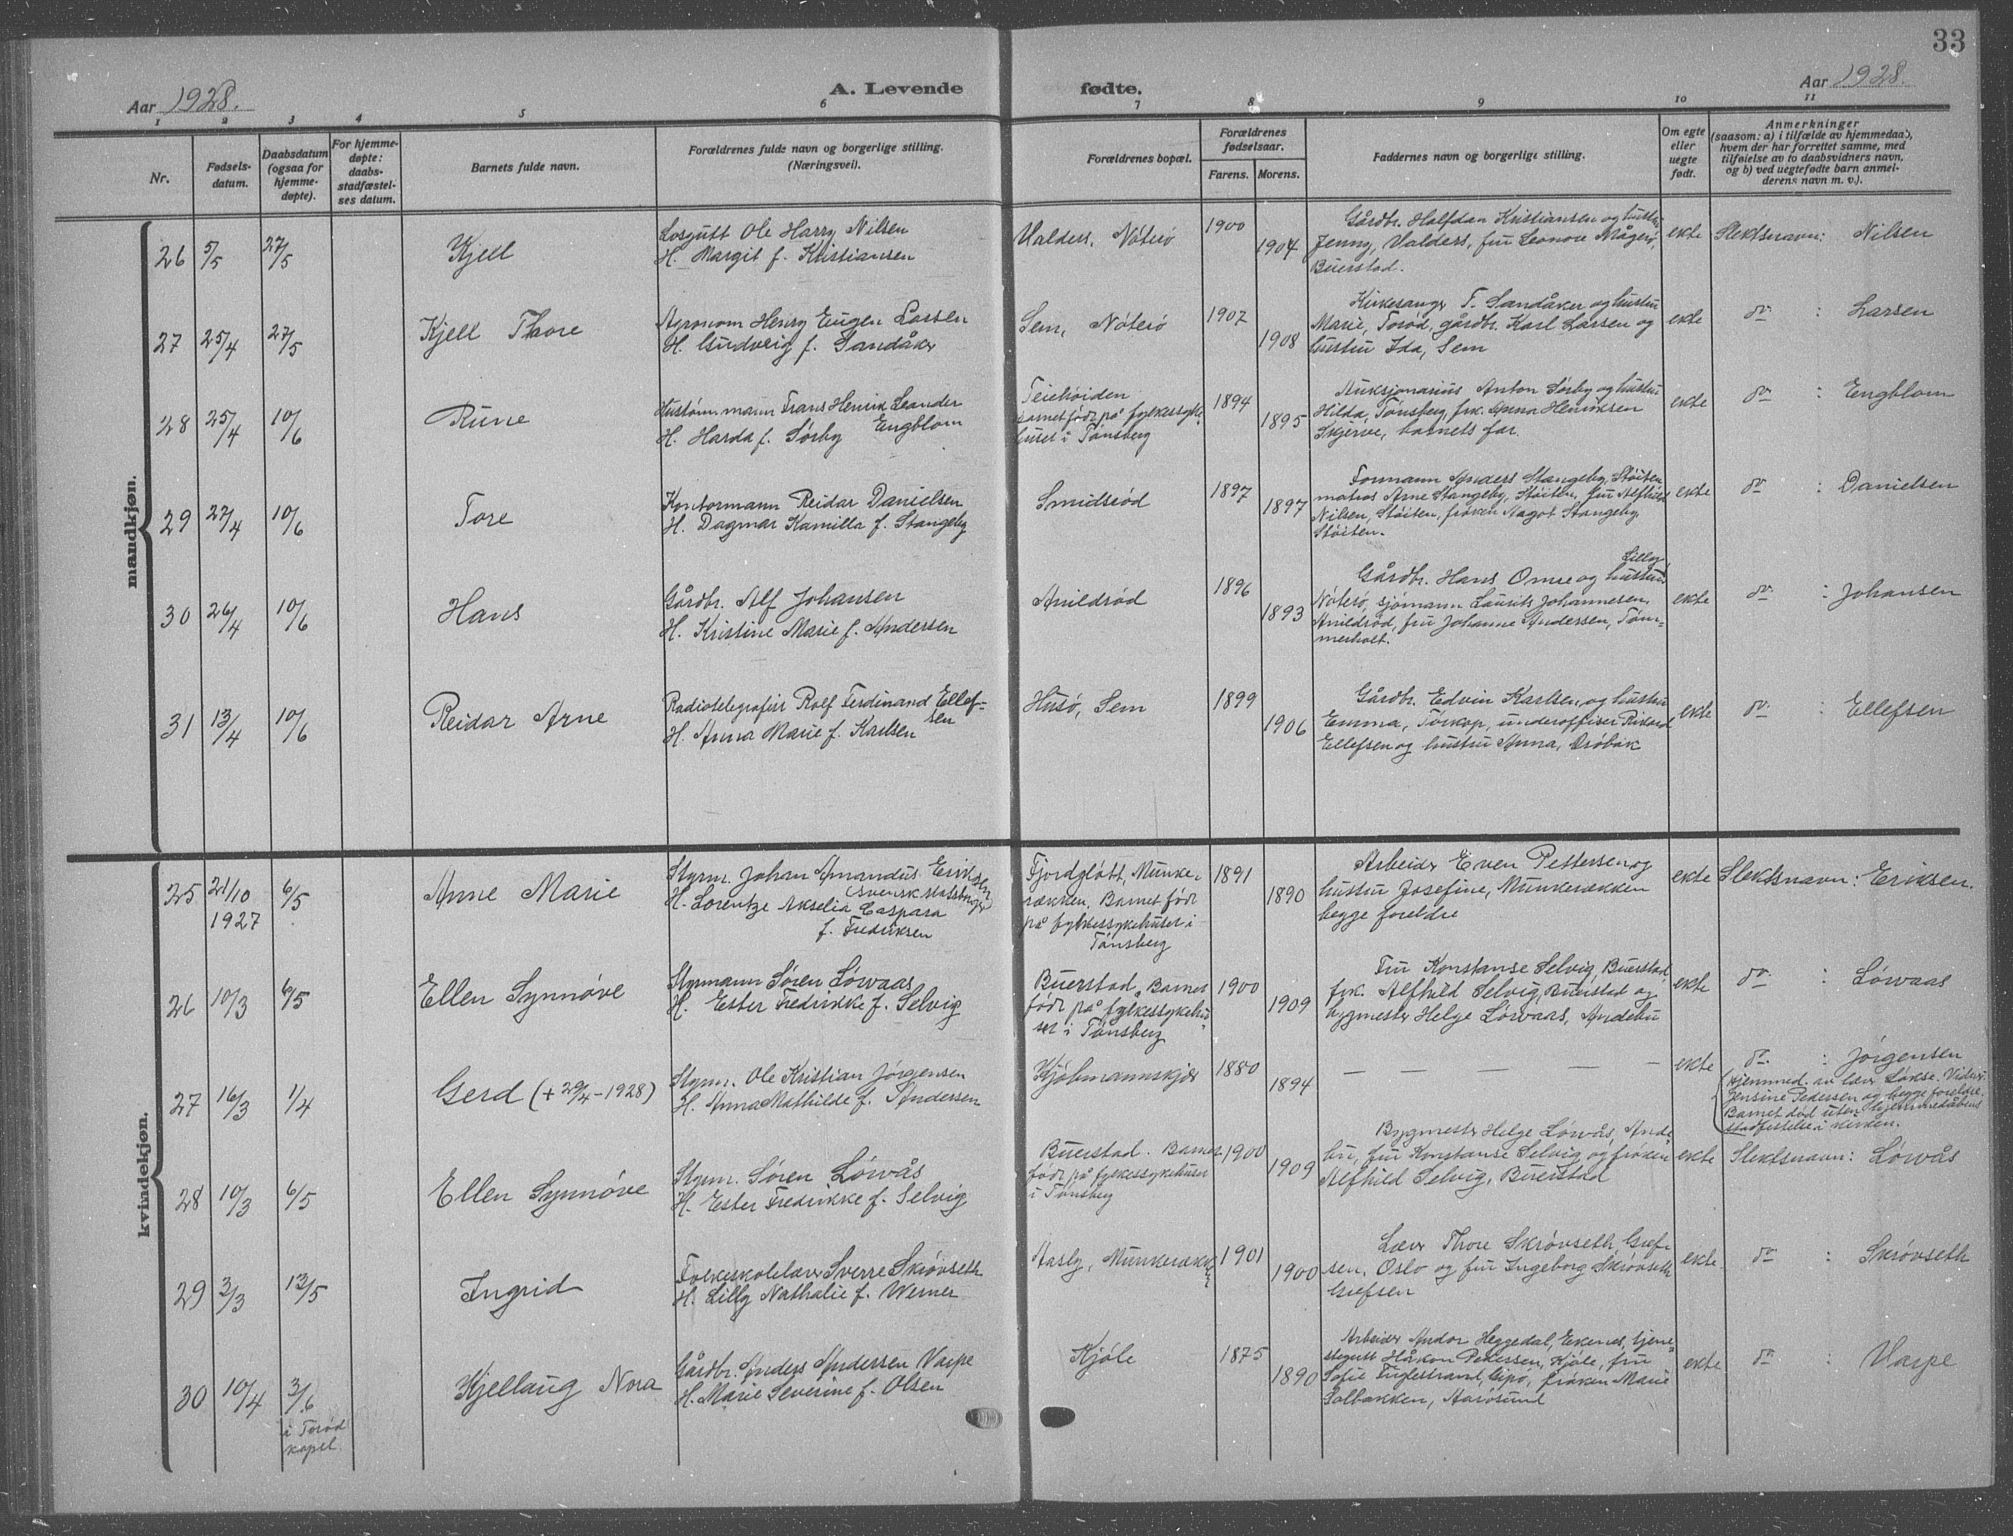 33
Aar 1928.
A. Levende fødte.
Aar 1928.
1 2 3 4 5 6 7 8 9 10 11
Nr.
Fødsels-
datum.
Daabsdatum
(ogsaa for
hjemme-
døpte).
For hjemme-
døpte:
daabs-
stadfæstel-
ses datum.
Barnets fulde navn.
Forældrenes fulde navn og borgerlige stilling.
(Næringsvei).
Forældrenes bopæl.
Forældrenes
fødselsaar.
Farens. Morens.
Faddernes navn og borgerlige stilling.
Om egte
eller
uegte
født.
Anmerkninger
(saasom: a) i tilfælde av hjemmedaab,
hvem der har forrettet samme, med
tilføielse av to daabsvidners navn,
og b) ved uegtefødte barn anmel-
derens navn m. v.).
mandkjøn.
26 5/5 27/5 Kjell
Losgutt Ole Harry Nilsen
H. Margit f. Kristiansen
Valders, Nøterø
1900 1904
Gårdbr. Halfdan Kristiansen og hustru
Jenny, Valders, fru Leonore Mågerø,
Buerstad.
ekte Slektsnavn: Nilsen
27 25/4 27/5 Kjell Thore
Agronom Henry Eugen Larsen
H. Gudveig f. Sandåker
Sem, Nøterø
1907 1908
Kirkesanger T. Sandåker og hustru
Marie, Torød, gårdbr. Karl Larsen og
hustru Ida, Sem
ekte do : Larsen
28 25/4 10/6 Rune
Frans Henrik Leander
Engblom
H. Harda f. Sørby
Teiehøiden
barnet født på fylkessyke
huset i Tønsberg
1894 1895
Auksjonarius Anton Sørby og hustru
Hilda, Tønsberg, frk. Anna Henriksen
Skjerve, barnets far.
ekte do : Engblom
29 27/4 10/6 Tore
Kontormann Reidar Danielsen
H. Dagmar Kamilla f. Stangeby
Smidsrød
1897 1897
Formann Anders Stangeby, Støiten
matros Arne Stangeby, Støiten, fru Alfhild
Nilsen, Støiten, frøken Nagot Stangeby
Støiten.
ekte do : Danielsen
30 26/4 10/6 Hans
Gårdbr. Alf Johansen
H. Kristine Marie f. Andersen
Arildsrød
1896 1893
Lilly
Gårdbr. Hans Omre og hustru
Nøterø, sjømann Laurits Johannesen,
Arildsrød, fru Johanne Andersen, Tøm-
merholt.
ekte do : Johansen
31 13/4 10/6 Reidar Arne
Radiotelegrafist Rolf Ferdinand Ellef-
sen
H. Anna Marie f. Karlsen
Husø, Sem
1899 1906
Gårdbr. Edvin Karlsen og hustru
Emma, Torkop, underoffiser Rikard
Ellefsen og hustru Anna, Drøbak
ekte do : Ellefsen
kvindekjøn.
25 21/10 1927 6/5 Anne Marie
Styrm. Johan Amandus Eriksen
(svensk statsborger)
H. Lorentze Akselia Caspara
f. Fredriksen
Fjordgløtt, Munke-
rækken. Barnet født
på fylkessykehuset i
Tønsberg
1891 1890
Arbeider Even Pettersen og
hustru Josefine, Munkerækken
begge foreldre
ekte Slektsnavn: Eriksen.
26 10/3 6/5 Ellen Synnøve
Styrmann Søren Løwaas
H. Ester Fredrikke f. Selvig
Buerstad, Barnet
født på fylkessykehu-
set i Tønsberg
1900 1909
Fru Konstanse Selvig, Buerstad,
frk. Alfhild Selvig, Buerstad og
bygmester Helge Løwaas, Andebu
ekte do : Løwaas
27 16/3 1/4 Gerd (+ 29/4 - 1928)
Styrm. Ole Kristian Jørgensen
H. Anna Mathilde f. Andersen
Kjøbmannskjær
1880 1894
— — — — —
ekte do : Jørgensen
(Hjemmed. av lærer Løkse. Vidner:
Jensine Pedersen og begge foreldre.
Barnet død uten hjemmedåbens
stadfestelse i kirken.
28 10/3 6/5 Ellen Synnøve
Styrm. Søren Løwås
H. Ester Fredrikke f. Selvig
Buerstad. Barnet
født på fylkessykehuset
i Tønsberg
1900 1909
Bygmester Helge Løwås, Ande-
bu, fru Konstanse Selvig og frøken
Alfhild Selvig, Buerstad
ekte Slektsnavn: Løwås
29 3/3 13/5 Ingrid
Folkeskolelærer Sverre Skrøvseth
H. Lilly Nathalie f. Werner
Aasly, Munkerækken
1901 1900
Lærer Thore Skrøvseth, Gref-
sen, Oslo og fru Ingeborg Skrøvseth
Grefsen
ekte do : Skrøvseth
30 10/4 3/6
i Torød
kapel.
Kjellaug Nora
Gårdbr. Anders Andersen Varpe
H. Marie Severine f. Olsen
Kjøle
1875 1890
Arbeider Andor Heggedal, Ekenes, tjene-
stegutt Håkon Pedersen, Kjøle, fru
Sofie Fuglestrand, Gipø, frøken Marie
Solbakken, Aarøsund
ekte do : Varpe